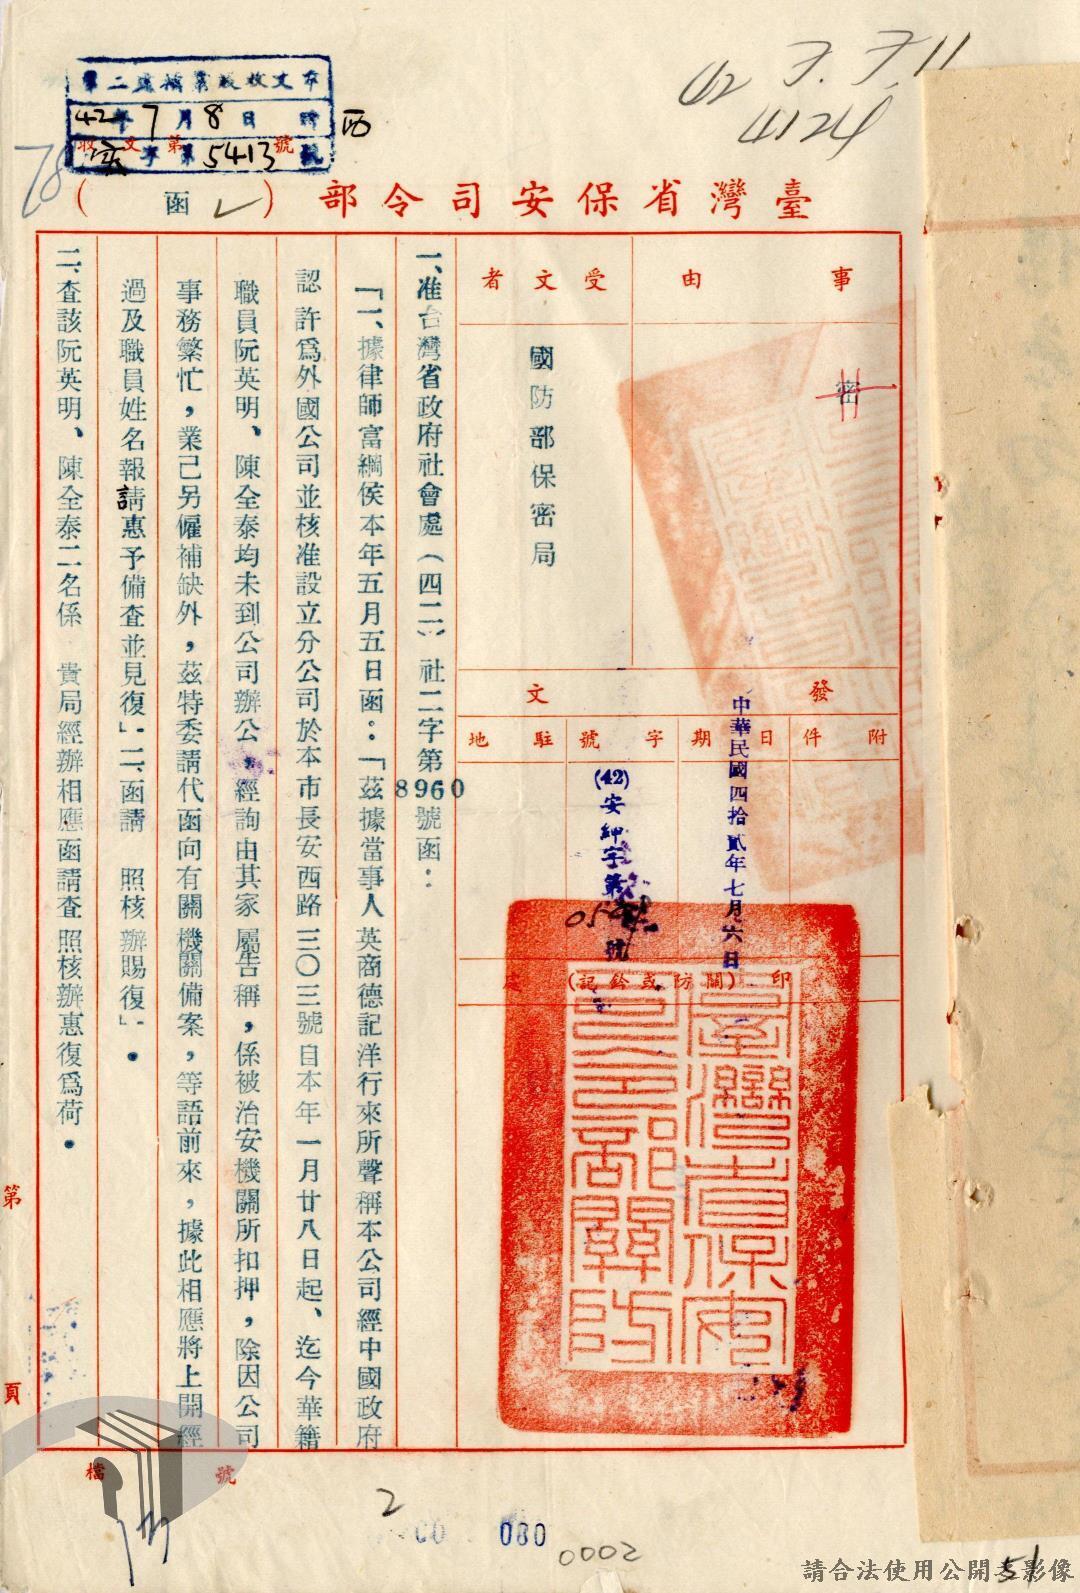 42 7. 7. 11
4124
42年7月8日 時
收文 字第5413號
臺灣省保安司令部(函)
事由
密
受文者
國防部保密局
發文
附件
日期
中華民國四拾貳年七月六日
字號
(42)安紳字第 號
駐地
印(關防或鈐記)處
臺灣省保安司令部關防
一、准台灣省政府社會處(四二)社二字第8960號函:
「一、據律師富綱侯本年五月五日函:「茲據當事人英商德記洋行來所聲稱本公司經中國政府
認許爲外國公司並核准設立分公司於本市長安西路三〇三號自本年一月廿八日起、迄今華籍
職員阮英明、陳全泰均未到公司辦公,經詢由其家屬告稱,係被治安機關所扣押,除因公司
事務繁忙,業己另僱補缺外,茲特委請代函向有關機關備案,等語前來,據此相應將上開經
過及職員姓名報請惠予備查並見復」.二、函請 照核辦賜復」.
二、查該阮英明、陳全泰二名係 貴局經辦相應函請查照核辦惠復爲荷.
第 頁
檔 號
2
080
0002
51
請合法使用公開之影像